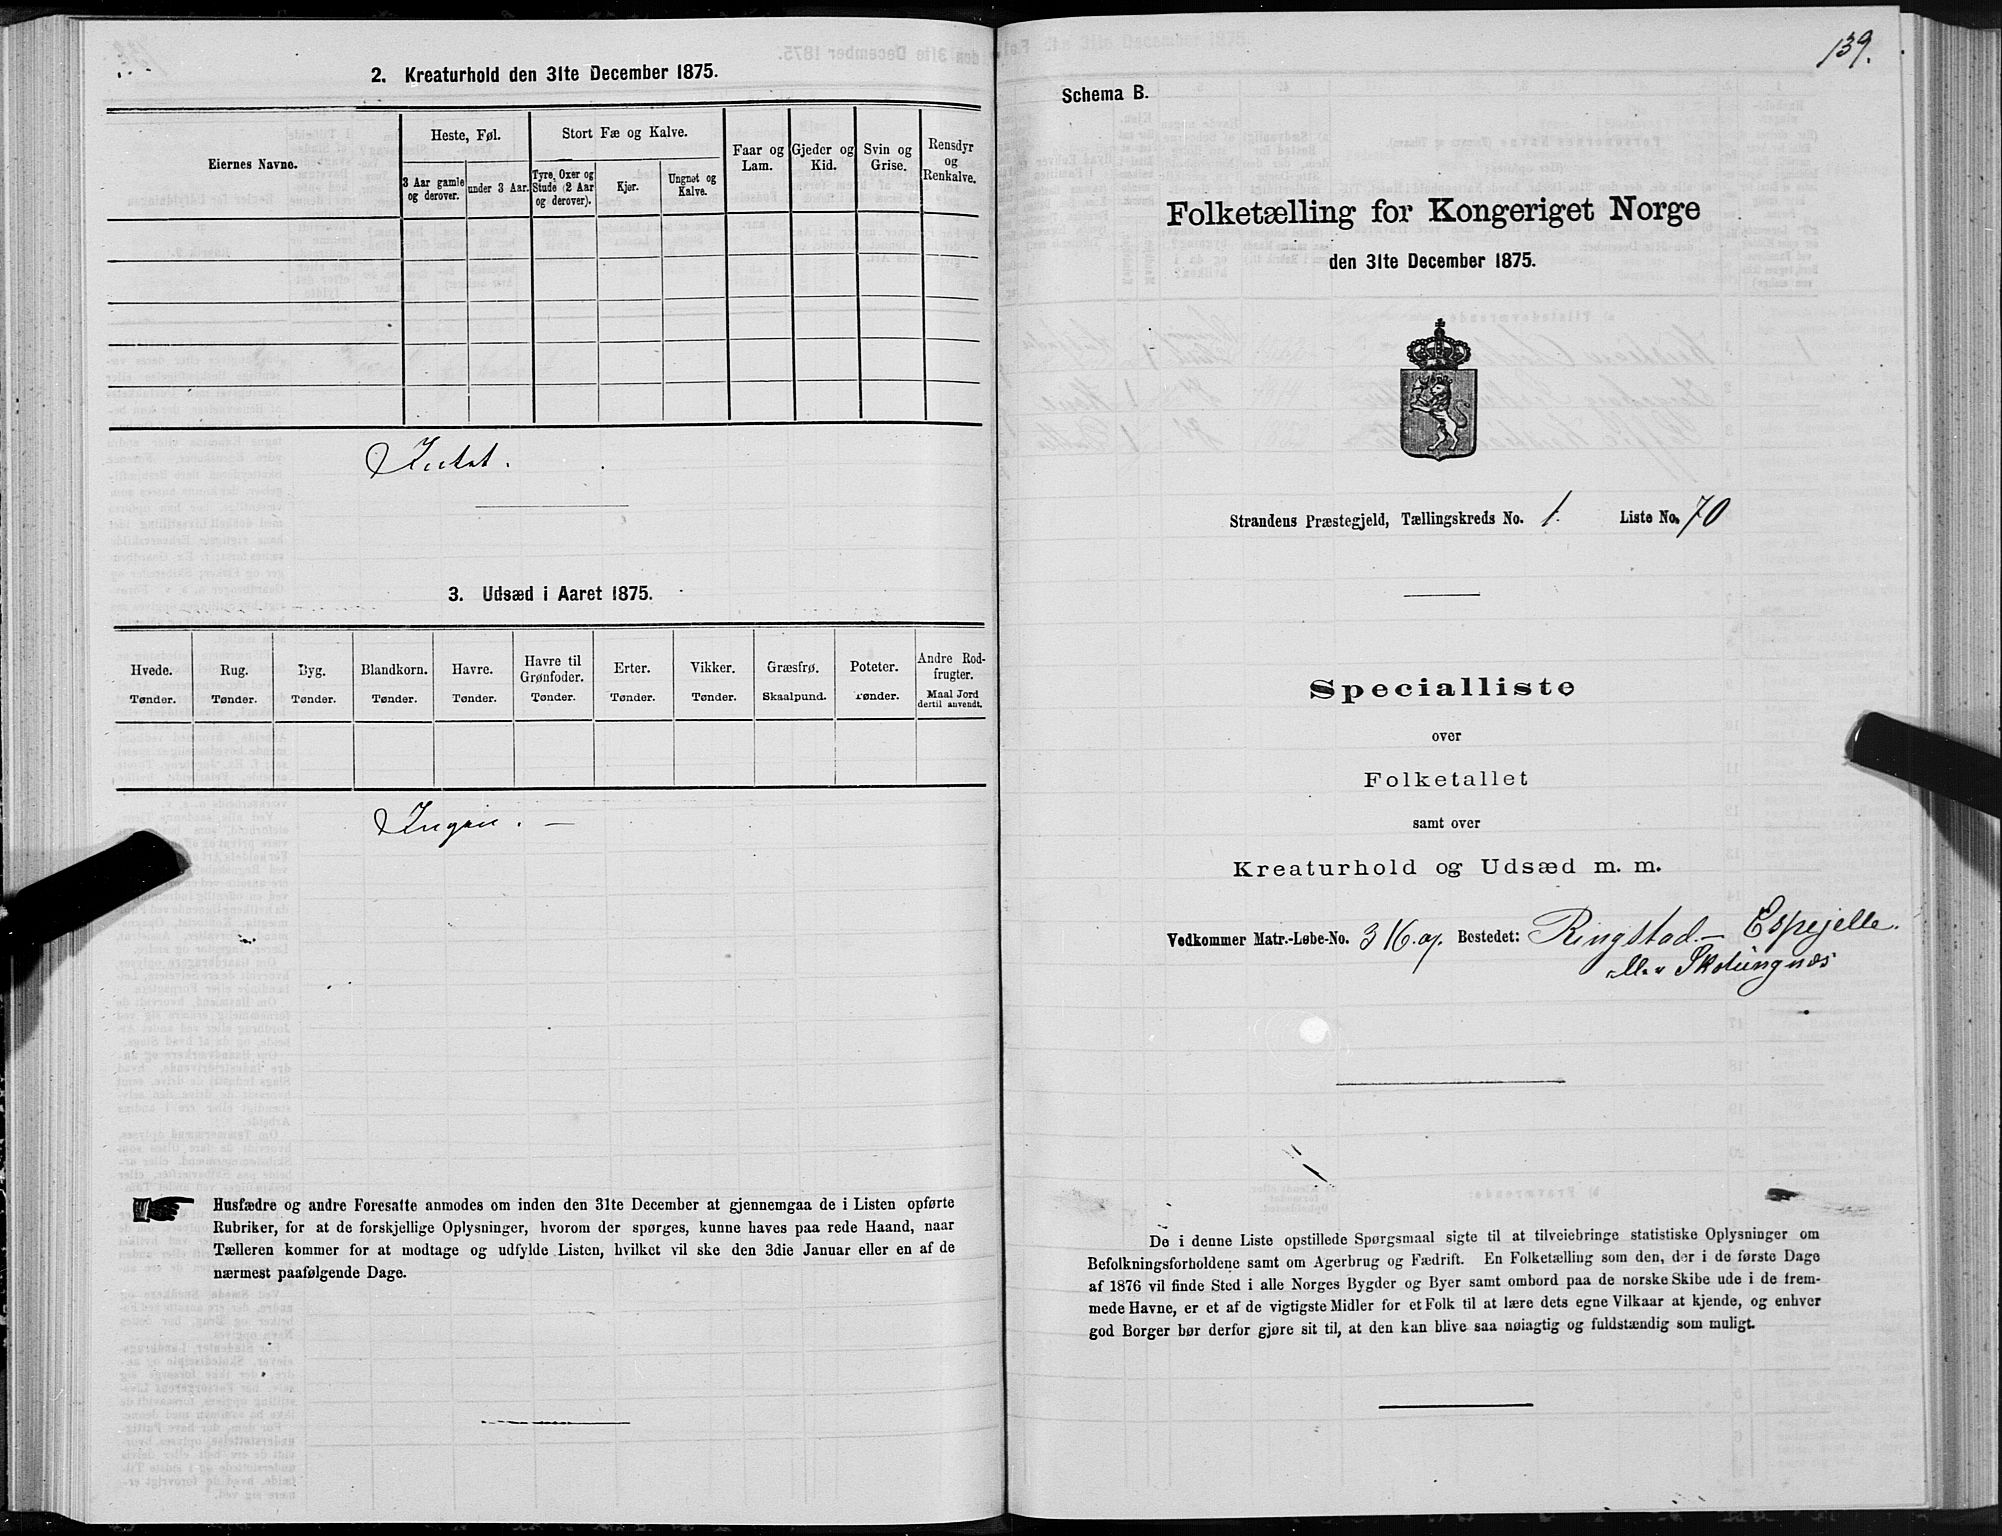 2. Kreaturhold den 31te December 1875.
Eiernes Navne.
Heste, Føl.
Stort Fæ og Kalve.
Faar og
Lam.
Gjeder og
Kid.
Svin og
Grise.
Rensdyr
og
Renkalve.
3 Aar gamle
og derover.
under 3 Aar.
Tyre, Oxer og
Stude (2 Aar
og derover).
Kjør.
Ungnøt og
Kalve.
Intet.
3. Udsæd i Aaret 1875.
Hvede.
Tønder.
Rug.
Tønder.
Byg.
Tønder.
Blandkorn.
Tønder.
Havre.
Tønder.
Havre til
Grønfoder.
Tønder.
Erter.
Tønder.
Vikker.
Tønder.
Græsfrø.
Skaalpund.
Poteter.
Tønder.
Andre Rod-
frugter.
Maal Jord
dertil anvendt.
Ingen. —
Husfædre og andre Foresatte anmodes om inden den 31te December at gjennemgaa de i Listen opførte
Rubriker, for at de forskjellige Oplysninger, hvorom der spørges, kunne haves paa rede Haand, naar
Tælleren kommer for at modtage og udfylde Listen, hvilket vil ske den 3die Januar eller en af de
nærmest paafølgende Dage.
139.
Schema B.
Folketælling for Kongeriget Norge
den 31te December 1875.
Strandens Præstegjeld, Tællingskreds No. 1. Liste No. 70
Specialliste
over
Folketallet
samt over
Kreaturhold og Udsæd m. m.
Vedkommer Matr.-Løbe-No. 3 Bostedet: Ringstad. — Espejelle.
eller
De i denne Liste opstillede Spørgsmaal sigte til at tilveiebringe statistiske Oplysninger om
Befolkningsforholdene samt om Agerbrug og Fædrift. En Folketælling som den, der i de første Dage
af 1876 vil finde Sted i alle Norges Bygder og Byer samt ombord paa de norske Skibe ude i de frem-
mede Havne, er et af de vigtigste Midler for et Folk til at lære dets egne Vilkaar at kjende, og enhver
god Borger bør derfor gjøre sit til, at den kan blive saa nøiagtig og fuldstændig som muligt.